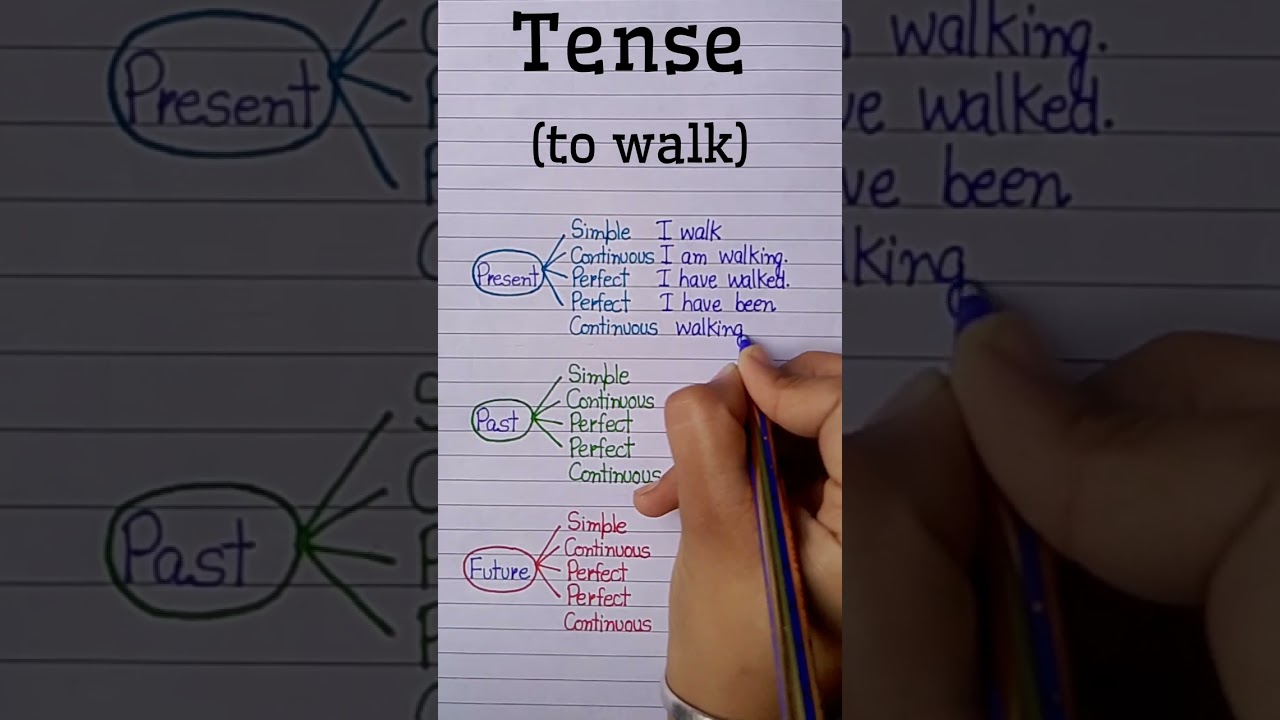 Tense
(to walk)
Present
Simple I walk
Continuous I am walking.
Perfect I have walked.
Perfect I have been
Continuous walking
Past
Simple
Continuous
Perfect
Perfect
Continuous
Future
Simple
Continuous
Perfect
Perfect
Continuous
Present
Past
walking.
walked.
been